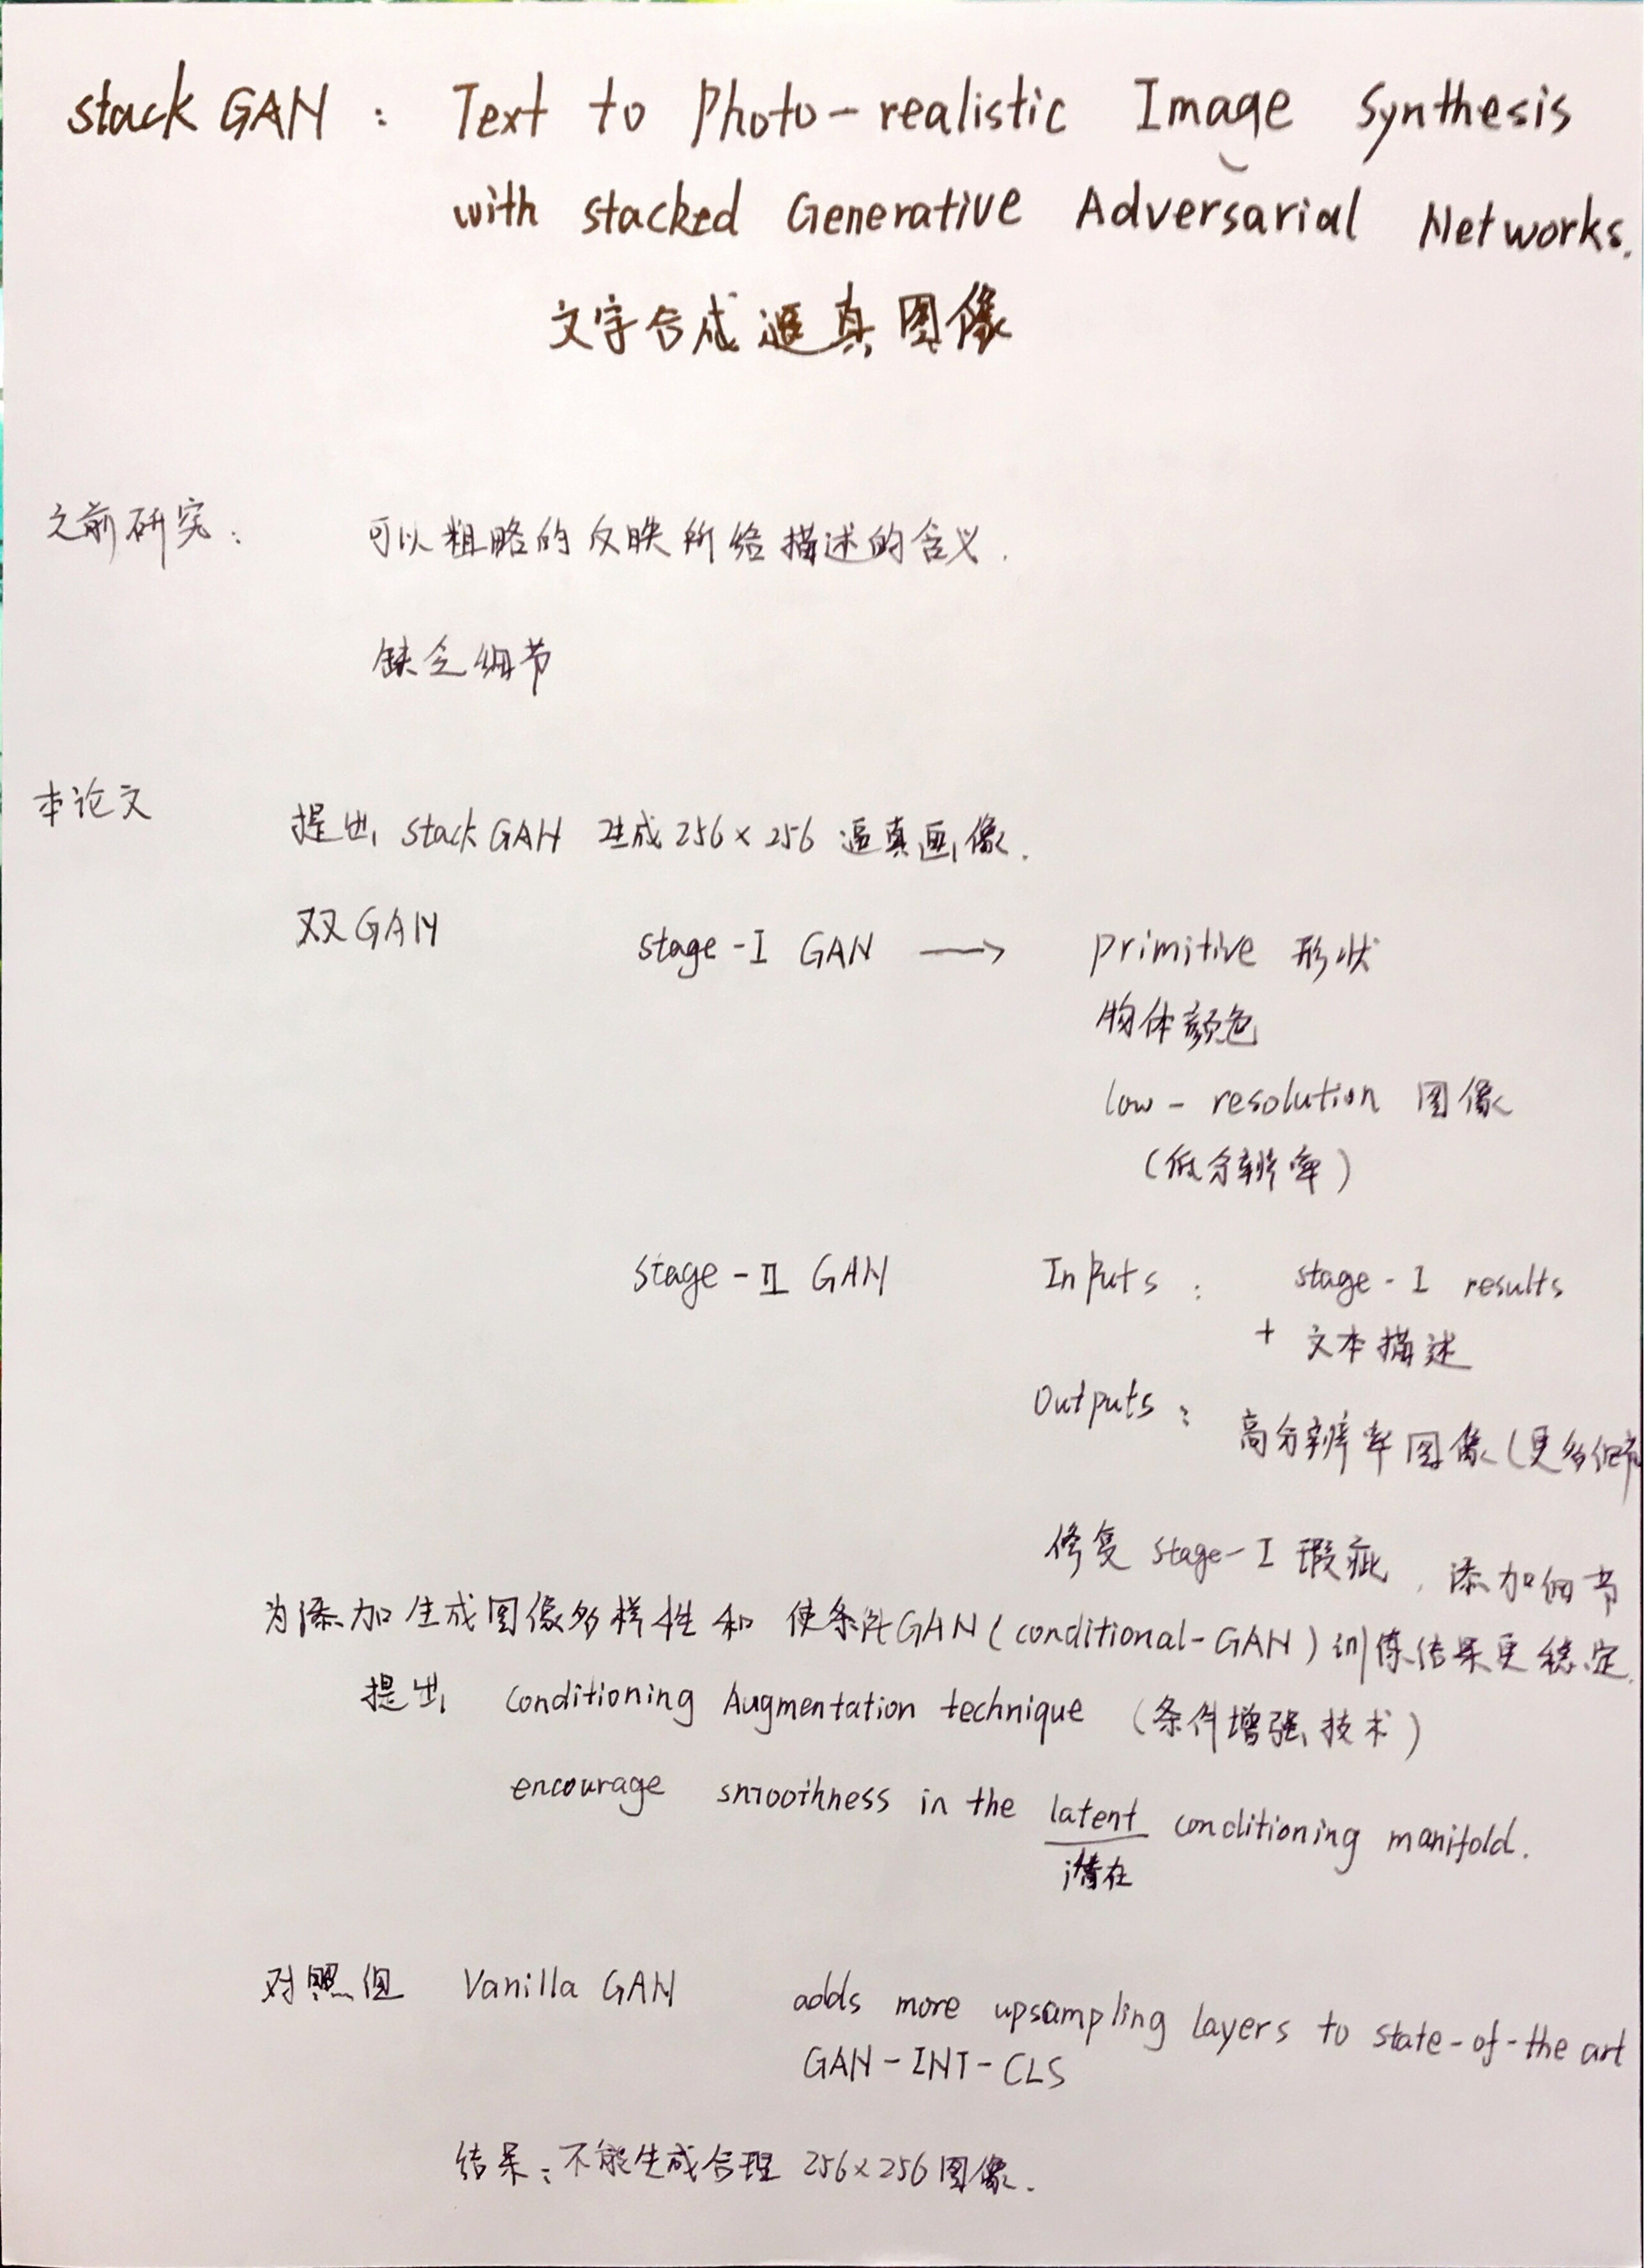 stack GAN : Text to Photo-realistic Image Synthesis
with stacked Generative Adversarial Networks.
文字合成逼真图像
之前研究: 可以粗略的反映所给描述的含义.
缺乏细节
本论文 提出 stack GAN 生成256×256 逼真画像.
双GAN stage-I GAN → primitive 形状
物体颜色
low-resolution 图像
(低分辨率)
stage-II GAN Inputs : stage-I results
+ 文本描述
Outputs : 高分辨率图像(更多细节
修复 stage-I 瑕疵, 添加细节
为添加生成图像多样性和 使条件GAN(conditional-GAN)训练结果更稳定.
提出 conditioning Augmentation technique (条件增强技术)
encourage smoothness in the latent conditioning manifold.
潜在
对照组 Vanilla GAN adds more upsampling layers to state-of-the art
GAN-INT-CLS
结果: 不能生成合理 256×256图像.